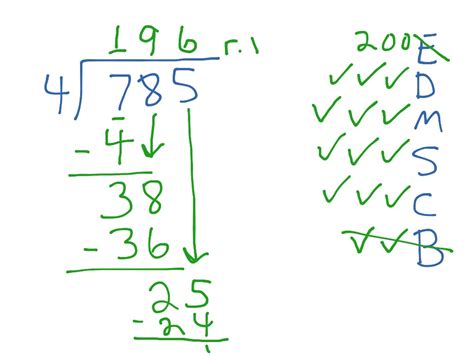 196 r.1
4 785
- 4
38
- 36
25
- 24
1
200 E
✓ ✓ ✓ D
✓ ✓ ✓ M
✓ ✓ ✓ S
✓ ✓ ✓ C
✓ ✓ B